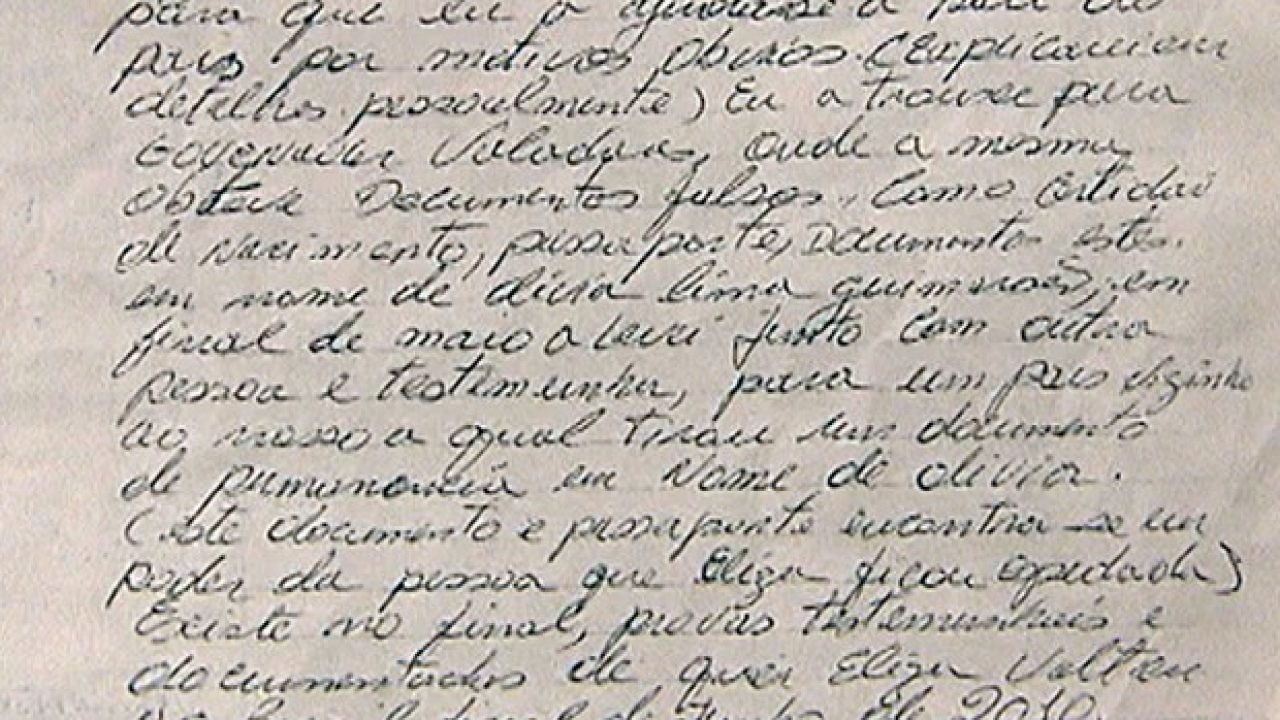 para que eu a ajudasse a sair do
pais por motivos obvios. (Explicarei em
detalhes pessoalmente) Eu a trouxe para
Governador Valadares, onde a mesma
obteve Documentos falsos, Como certidão
de nascimento, passaporte, Documentos estes
em nome de olivia lima guimarães, em
final de maio a levei junto com outra
pessoa e testemunha, para um pais vizinho
ao nosso a qual tirou um documento
de permanencia em Nome de olivia.
(este documento e passaporte encontra-se em
poder da pessoa que Eliza ficou ospedada)
Existe no final, provas testemunhais e
documentados de que Eliza Voltou
final de Junho de 2010